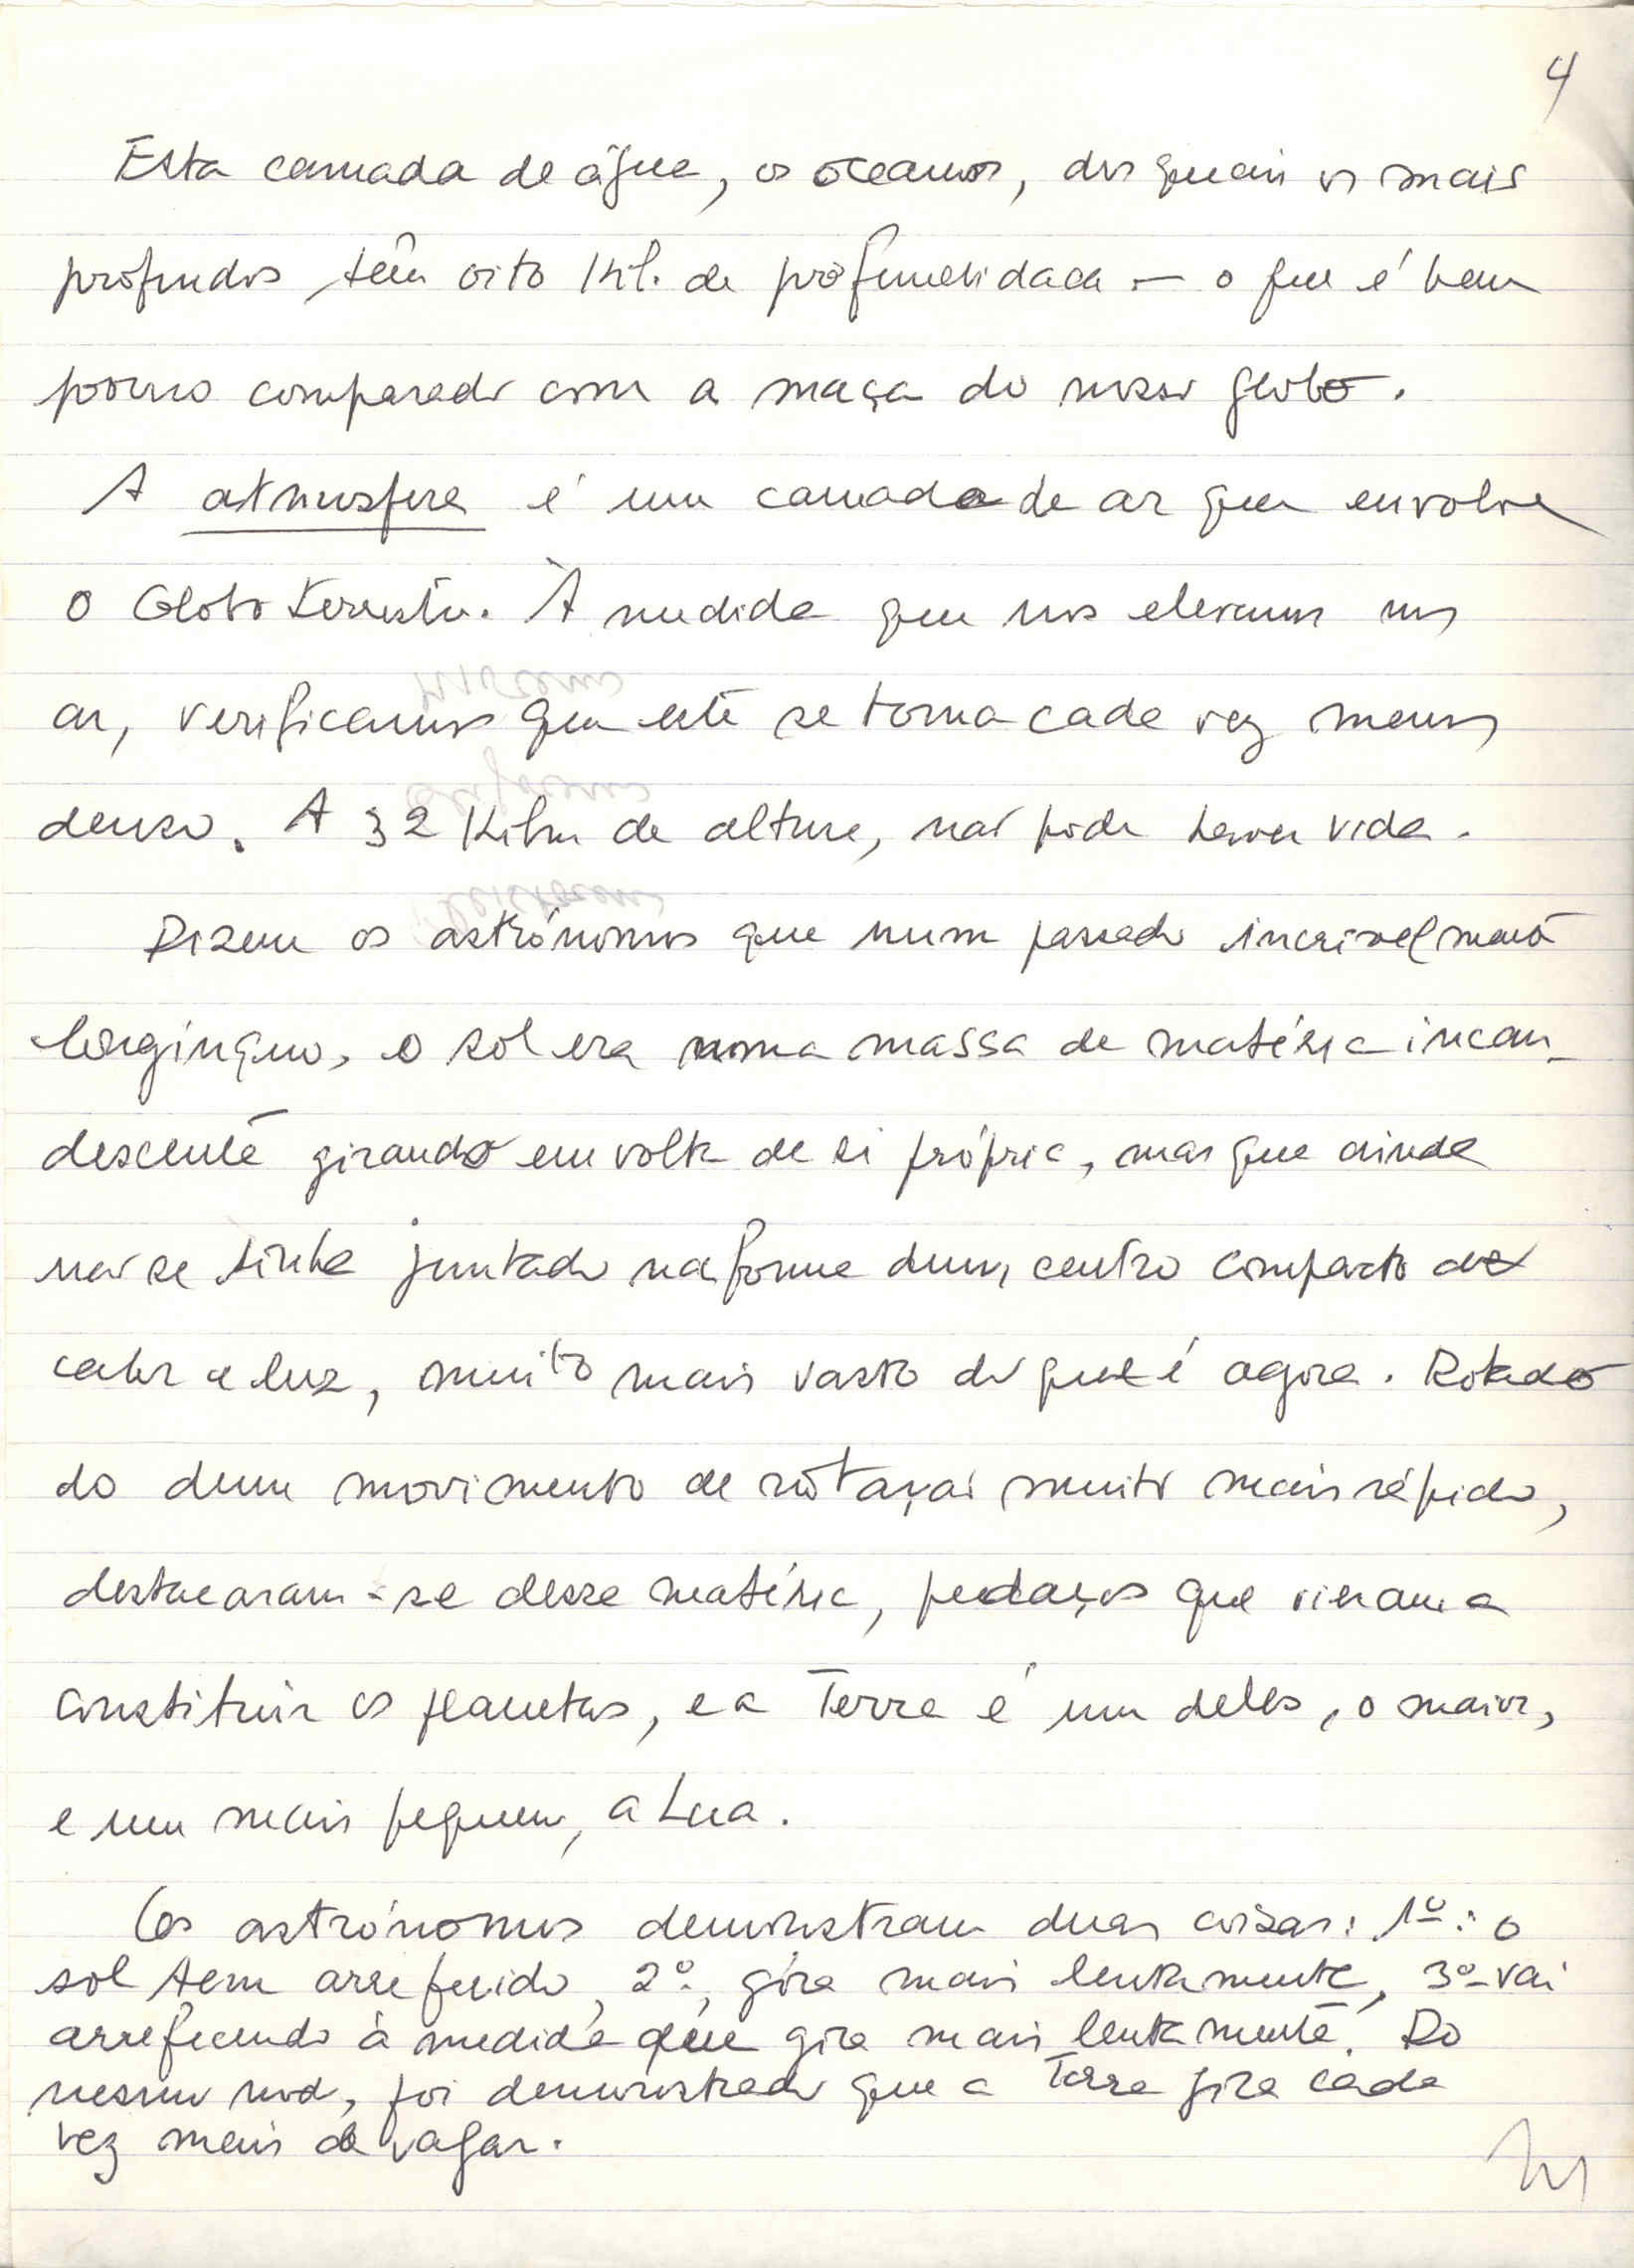 4
Esta camada de água, os oceanos, dos quais os mais
profundos têm oito Kil. de profundidade — o que é bem
pouco comparado com a maça do nosso globo.
A atmosfera é um camada de ar que envolve
o Globo terrestre. À medida que nos elevamos nos
ar, verificamos que este se torna cada vez menos
denso. A 32 Kilm de altura, não pode haver vida.
Dizem os astrónomos que num passado incrivelmente
longínquo, o sol era numa massa de matéria incan_
descente girando em volta de si própria, mas que ainda
não se tinha juntado na forma dum centro compacto de
calor e luz, muito mais vasto do que é agora. Rotado
do dum movimento de rotação muito mais rápido,
destacaram-se dessa matéria, pedaços que vieram a
constituir os planetas, e a Terra é um deles, o maior,
e um mais pequeno, a Lua.
Os astrónomos demonstram duas coisas: 1º: o
sol tem arrefecido, 2º, gira mais lentamente, 3º vai
arrefecendo à medida que gira mais lentamente. Do
mesmo mod, foi demonstrado que a Terra gira cada
vez mais devagar.